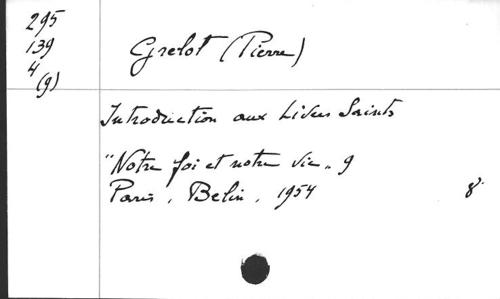 295
139
4
(9)
Grelot (Pierre)
Introduction aux Livres Saints
"Notre foi et notre vie" 9
Paris, Belin, 1954
8°